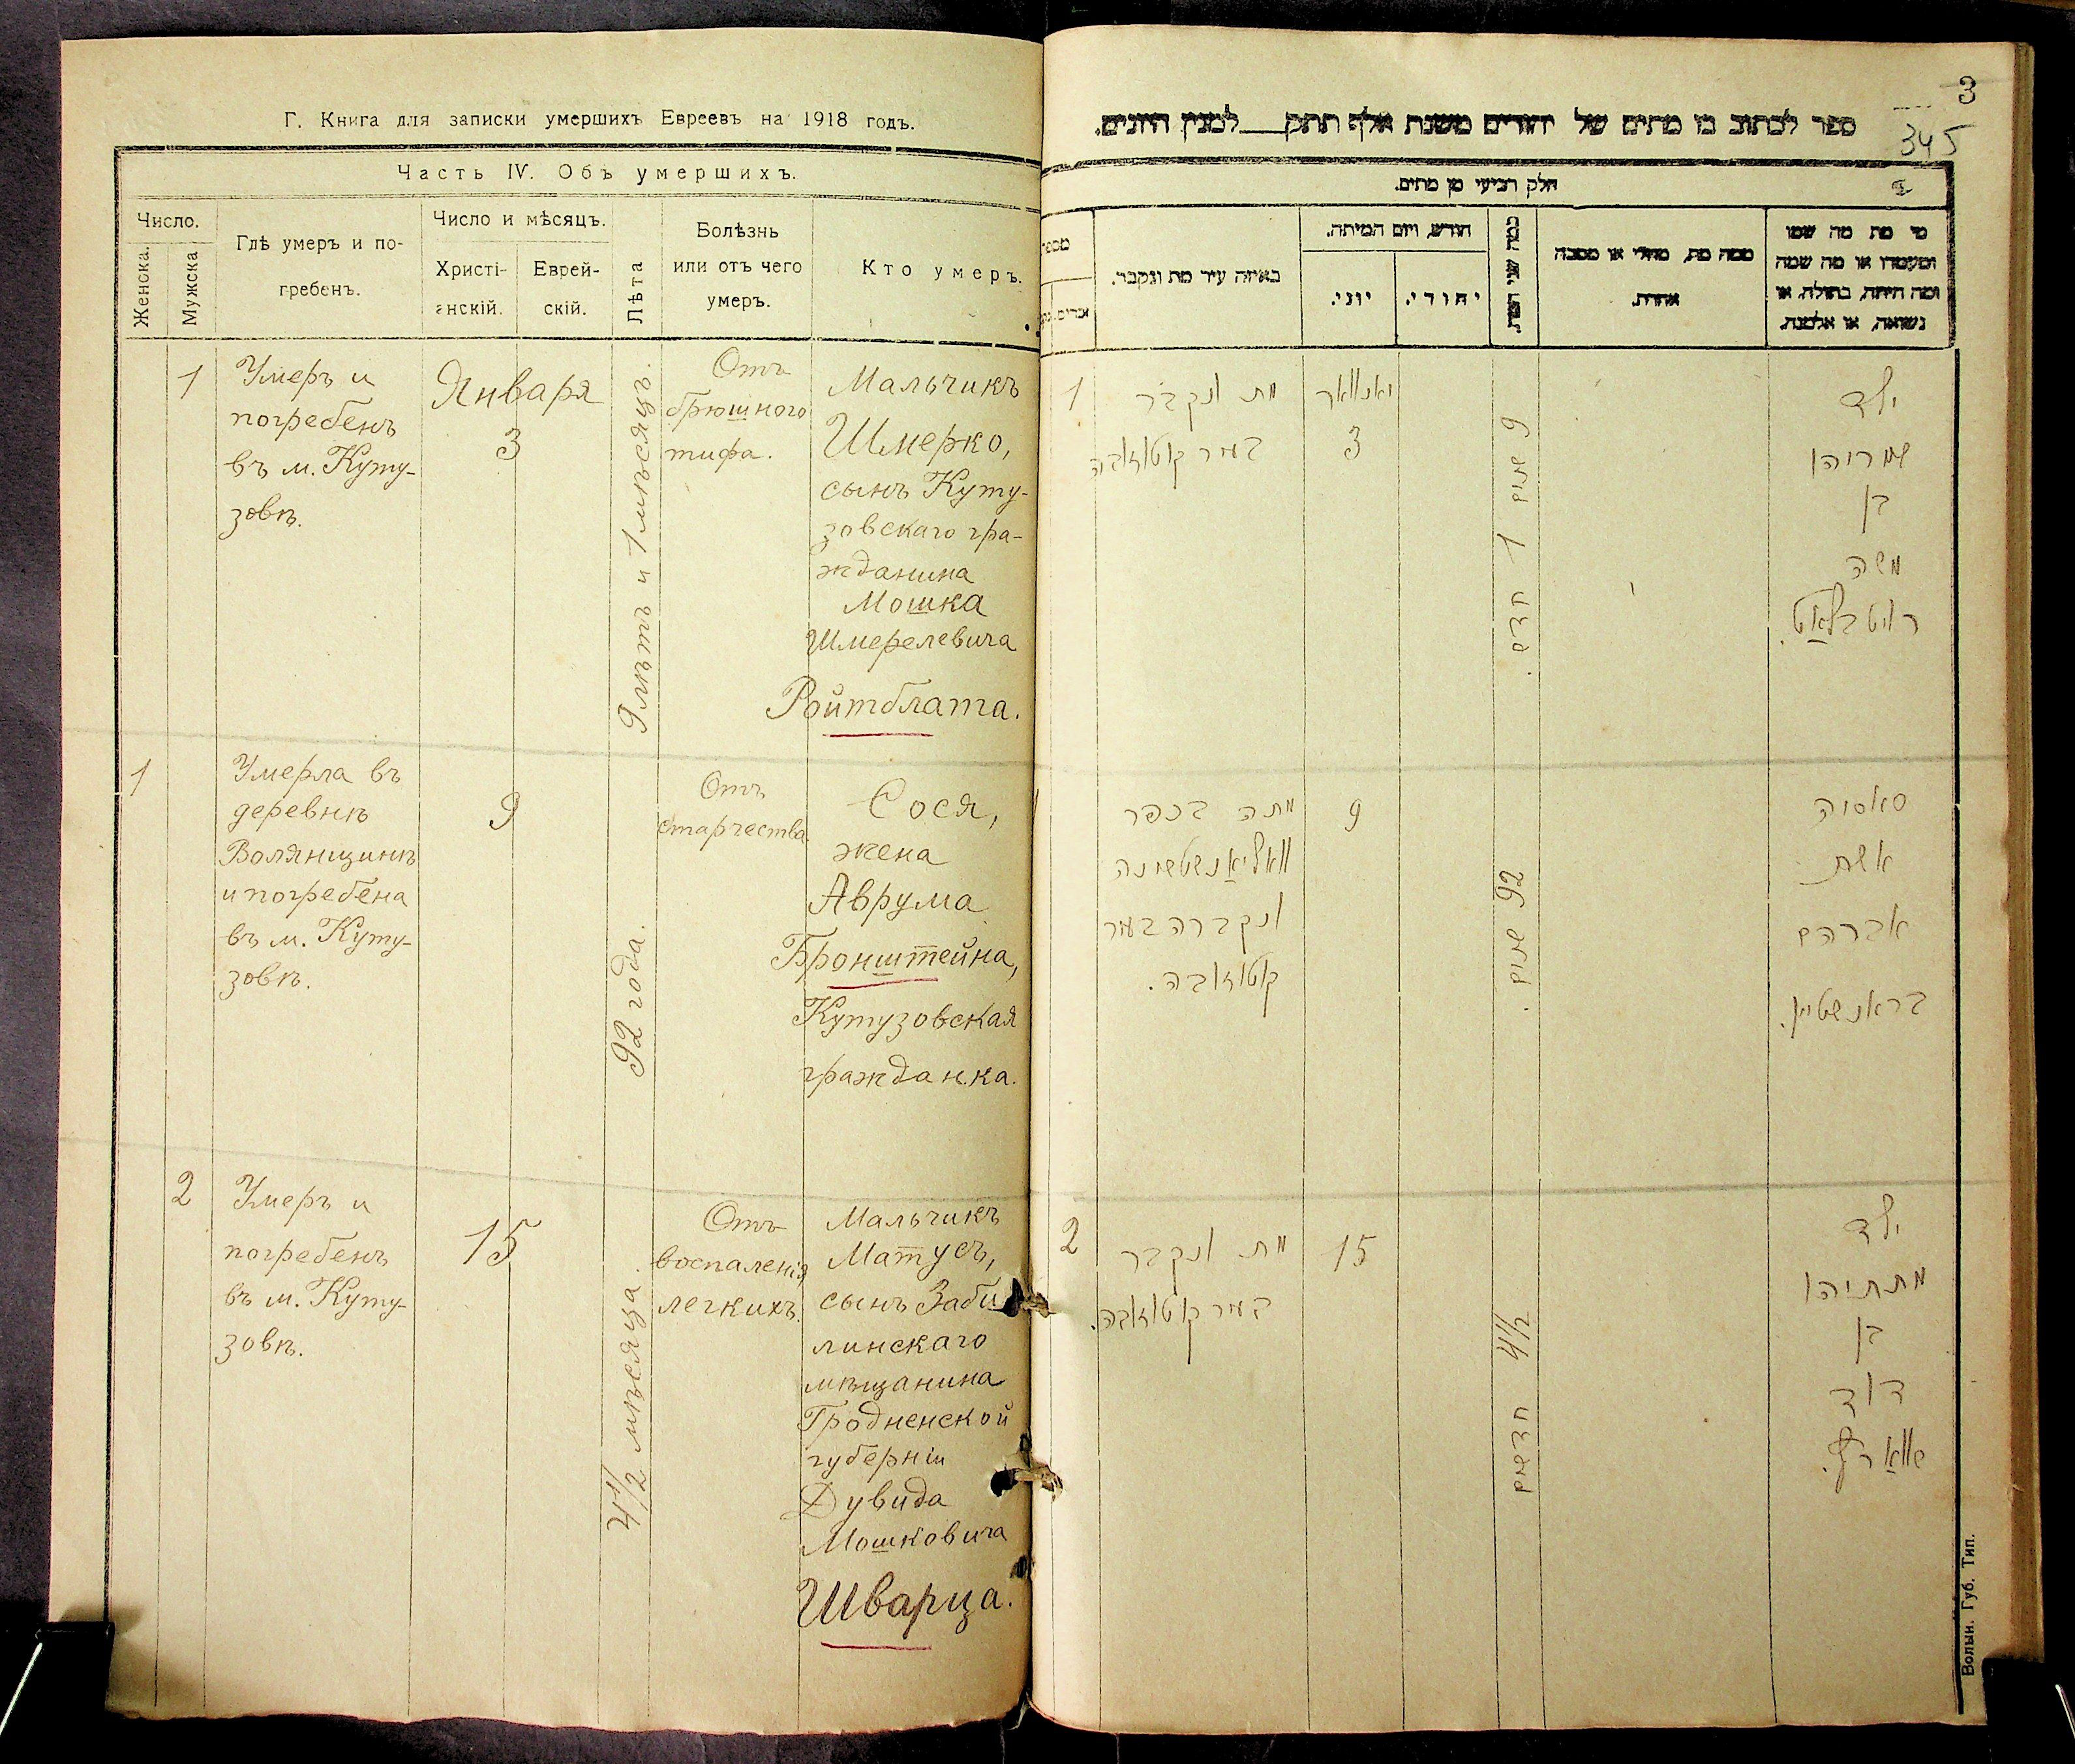 Г. Книга для записки умершихъ Евреевъ на 1918 годъ.
Часть IV. Объ умершихъ.
Число.
Женска.
Мужска.
Гдѣ умеръ и по-
гребенъ.
Число и мѣсяцъ.
Христі-
анскій.
Еврей-
скій.
Лѣта
Болѣзнь
или отъ чего
умеръ.
Кто умеръ.
1
Умеръ и
погребенъ
въ м. Куту-
зовкѣ.
Января
3
9 лѣтъ и 1 мѣсяцъ.
Отъ
брюшного
тифа.
Мальчикъ
Шмерко,
сынъ Куту-
зовскаго гра-
жданина
Мошка
Шмерелевича
Ройтблата.
1
Умерла въ
деревнѣ
Волянщинѣ
и погребена
въ м. Куту-
зовкѣ.
9
92 года.
Отъ
старчества
Сося,
жена
Аврума
Бронштейна,
Кутузовская
гражданка.
2
Умеръ и
погребенъ
въ м. Куту-
зовкѣ.
15
4 1/2 мѣсяца.
Отъ
воспаленія
легкихъ.
Мальчикъ
Матусъ,
сынъ Заби
линскаго
мѣщанина
Гродненской
губерніи
Дувида
Мошковича
Шварца.
3
345
ספר לכתוב בו מתים של יהודים משנת אלף תתק___למנין היונים.
חלק רביעי מן מתים.
מי מת מה שמו
ומעמדו או מה שמה
ומה היתה, בתולה, או
נשואה, או אלמנה.
ממה מת, מחלי או מסבה
אחרת.
כמה שני המת.
חודש, ויום המיתה.
יהודי.
יוני.
באיזה עיר מת ונקבר.
מספר
ילד
שמריהו
בן
משה
רויטבלאַט.
9 שנים 1 חדש.
יאנוואר
3
מת ונקבר
בעיר קוטוזובה
1
סאסיה
אשת
אברהם
בראנשטיין.
92 שנים.
9
מתה בכפר
וואליאַנשטשינה
ונקברה בעיר
קוטוזובה.
ילד
מתתיהו
בן
דוד
שוואַרץ.
4 1/2 חדשים
15
מת ונקבר
בעיר קוטוזובה.
2
Волын. Губ. Тип.